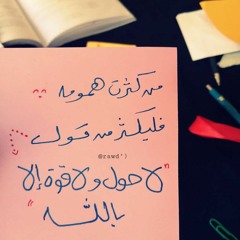 من كثرت همومه
فليكثر من قول
@rawd'1
"لا حول ولا قوة إلا
بالله"